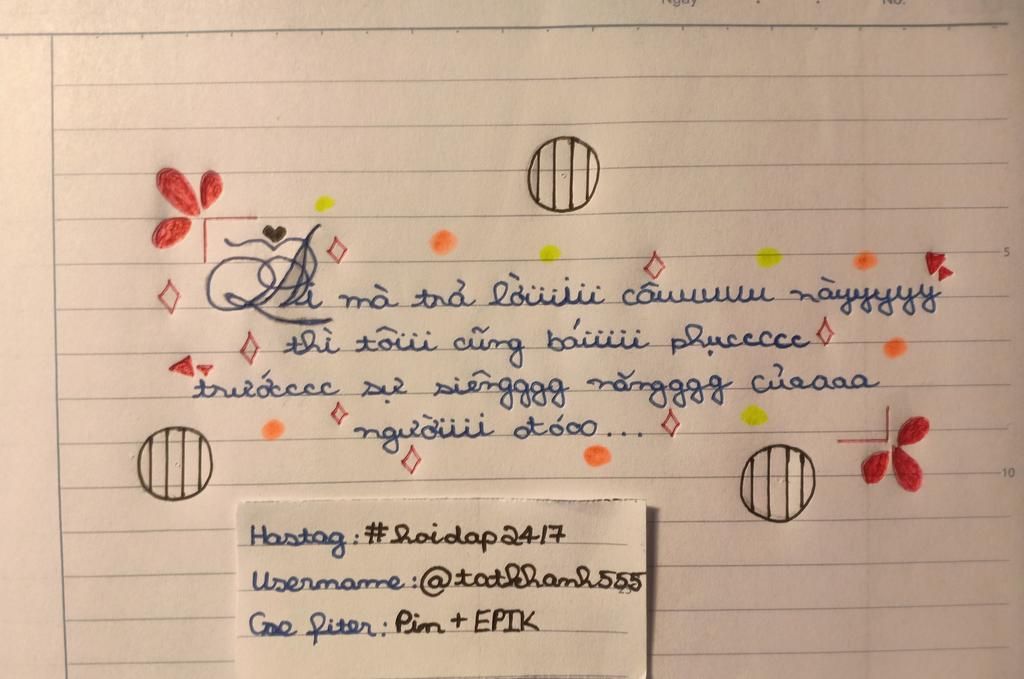 Ngày
No.
Ai mà trả lờiiiiii câuuuuuu nàyyyyyy
5
thì tôiiii cũng báiiiiii phụccccc
trướcccc sự siêngggg nănggggg củaaaa
ngườiiiii đóoo...
10
Hastag: #hoidap247
Username: @totkhanh555
Cre fiter: Pin + EPIK